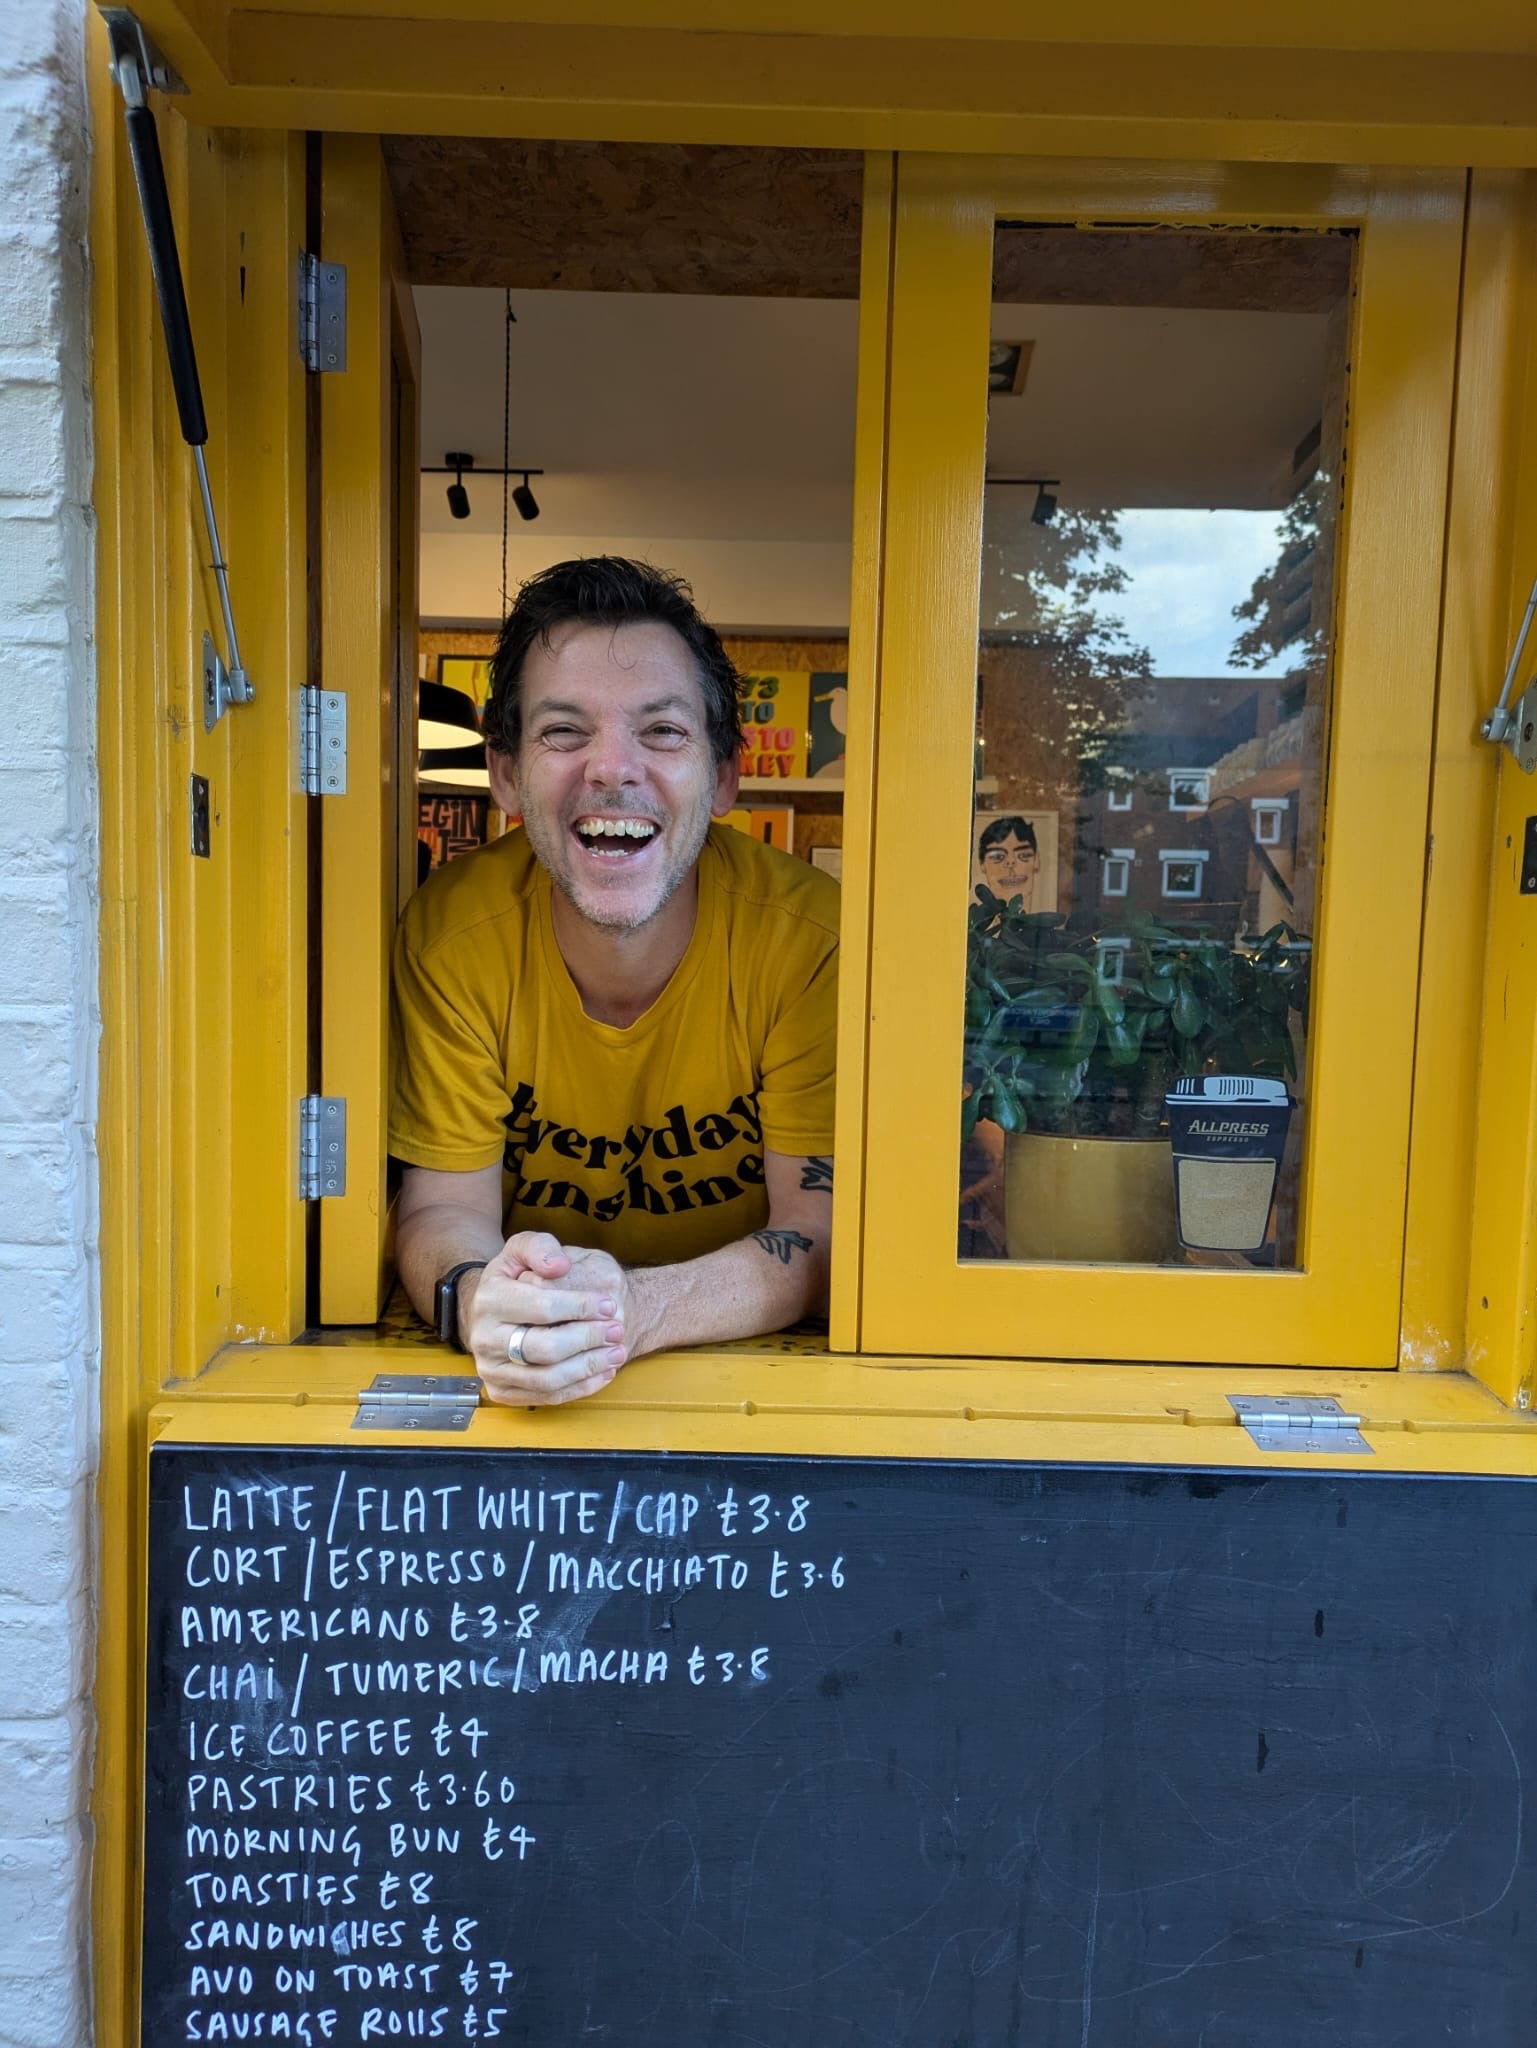 73
TO
TO
KEY
EGIN
Everyday
Sunshine
ALLPRESS
ESPRESSO
LATTE/FLAT WHITE/CAP £3.8
CORT/ESPRESSO/MACCHIATO £3.6
AMERICANO £3.8
CHAI/TUMERIC/MACHA £3.8
ICE COFFEE £4
PASTRIES £3.60
MORNING BUN £4
TOASTIES £8
SANDWICHES £8
AVO ON TOAST £7
SAUSAGE ROLLS £5